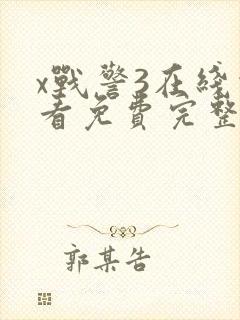 x戰警3在綫
看免費完整
郭某告